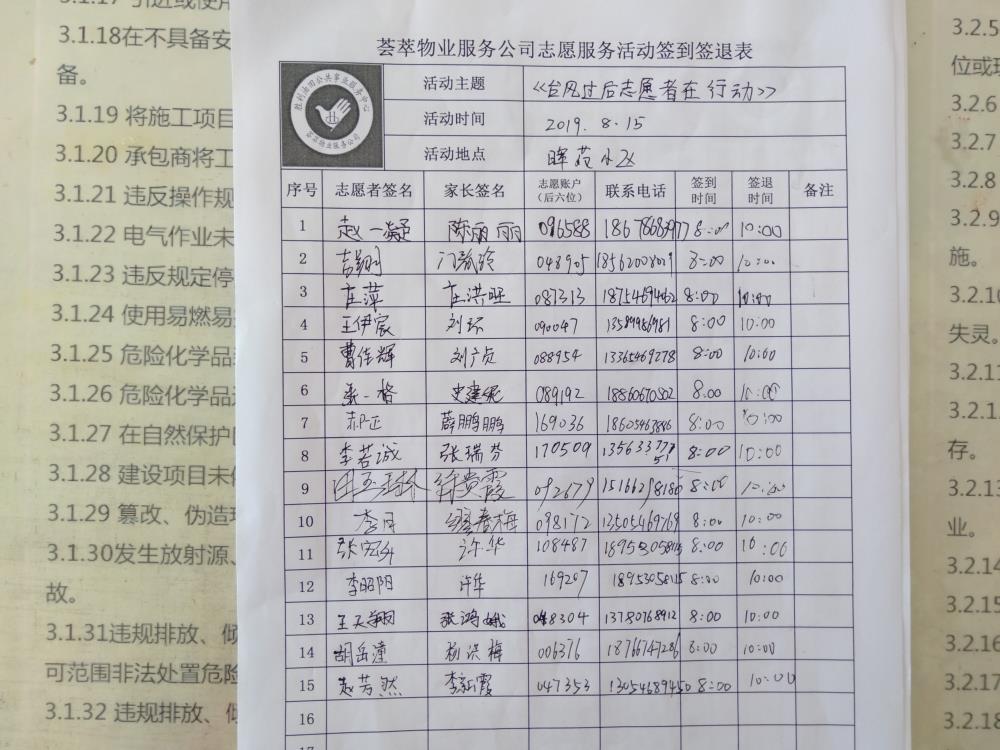 3.1.17 引进或使用
3.1.18在不具备安
备。
3.1.19 将施工项目
3.1.20 承包商将工
3.1.21 违反操作规
3.1.22 电气作业未
3.1.23 违反规定停
3.1.24 使用易燃易
3.1.25 危险化学品
3.1.26 危险化学品
3.1.27 在自然保护
3.1.28 建设项目未
3.1.29 篡改、伪造
3.1.30发生放射源、
故。
3.1.31违规排放、倾
可范围非法处置危险
3.1.32 违规排放、倾
荟萃物业服务公司志愿服务活动签到签退表
胜利油田公共事业服务中心
荟萃物业公司
活动主题 《台风过后志愿者在行动》
活动时间 2019.8.15
活动地点 晖苑小区
序号 志愿者签名 家长签名 志愿账户（后六位） 联系电话 签到时间 签退时间 备注
1 赵一凝 陈丽丽 096588 8:00 10:00
2 048905 18562008019 8:00 10:00
3 庄萍 庄洪旺 087313 18754694462 8:00 10:00
4 王伊宸 刘环 090047 13589956981 8:00 10:00
5 曹佳辉 刘广贞 088954 13365469278 8:00 10:00
6 张一格 史建妮 089192 18860670802 8:00 10:00
7 薛鹏鹏 169036 18605463846 8:00 10:00
8 李若诚 张瑞芬 170509 8:00 10:00
9 徐贵霞 092679 15166298180 8:00 10:00
10 李月 098172 13505469769 8:00 10:00
11 许华 108487 18953058115 8:00 10:00
12 李昭阳 许华 169207 18953058115 8:00 10:00
13 王天翔 张鸿娥 048304 13780768912 8:00 10:00
14 胡岳潼 杨洪梅 006376 18766747286 8:00 10:00
15 赵芳然 李红霞 047353 13054689450 8:00 10:00
16
17
3.2.5
位或
3.2.6
3.2.7
3.2.8
3.2.9
施。
3.2.10
失灵。
3.2.11
3.2.12
存。
3.2.13
业。
3.2.14
3.2.15
3.2.16
3.2.17
3.2.18